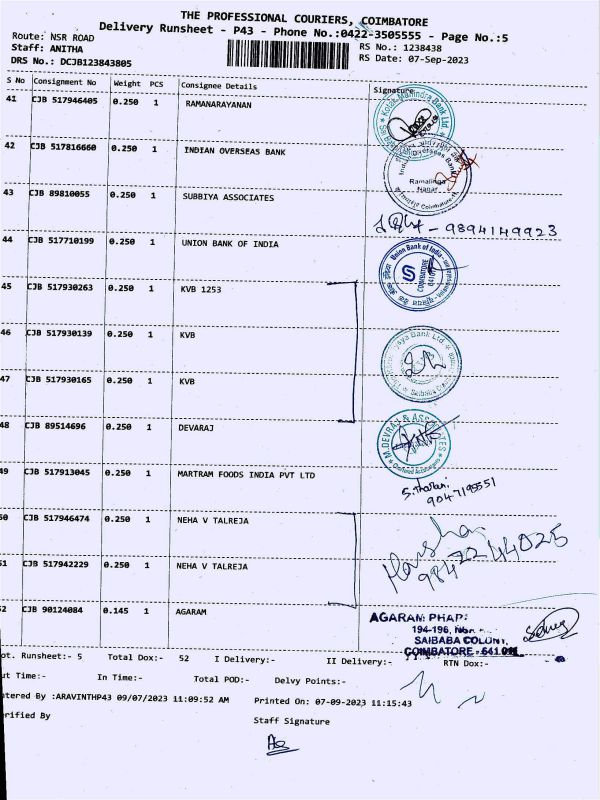 THE PROFESSIONAL COURIERS, COIMBATORE
Delivery Runsheet - P43 - Phone No.:0422-3505555 - Page No.:5
Route: NSR ROAD
RS No.: 1238438
Staff: ANITHA
RS Date: 07-Sep-2023
DRS No.: DCJB123843805
S No Consignment No Weight PCS Consignee Details Signature
41 CJB 517946405 0.250 1 RAMANARAYANAN
Kotak Mahindra Bank Ltd
42 CJB 517816660 0.250 1 INDIAN OVERSEAS BANK
Indian Overseas Bank
Ramalinga
Nagar
Coimbatore
43 CJB 89810055 0.250 1 SUBBIYA ASSOCIATES
- 9894149923
44 CJB 517710199 0.250 1 UNION BANK OF INDIA
Union Bank of India
COIMBATORE
45 CJB 517930263 0.250 1 KVB 1253
46 CJB 517930139 0.250 1 KVB
Bank Ltd
47 CJB 517930165 0.250 1 KVB
48 CJB 89514696 0.250 1 DEVARAJ
M.DEVRAJ & ASSOCIATES
Chartered Accountants
49 CJB 517913045 0.250 1 MARTRAM FOODS INDIA PVT LTD
S.Tharani
9047195551
50 CJB 517946474 0.250 1 NEHA V TALREJA
Harsha
9842244025
51 CJB 517942229 0.250 1 NEHA V TALREJA
52 CJB 90124084 0.145 1 AGARAM
AGARAM
194-196,
SAIBABA COLONY,
COIMBATORE - 641 011
ot. Runsheet:- 5 Total Dox:- 52 I Delivery:- II Delivery:- RTN Dox:-
ut Time:- In Time:- Total POD:- Delvy Points:-
ntered By :ARAVINTHP43 09/07/2023 11:09:52 AM Printed On: 07-09-2023 11:15:43
erified By Staff Signature